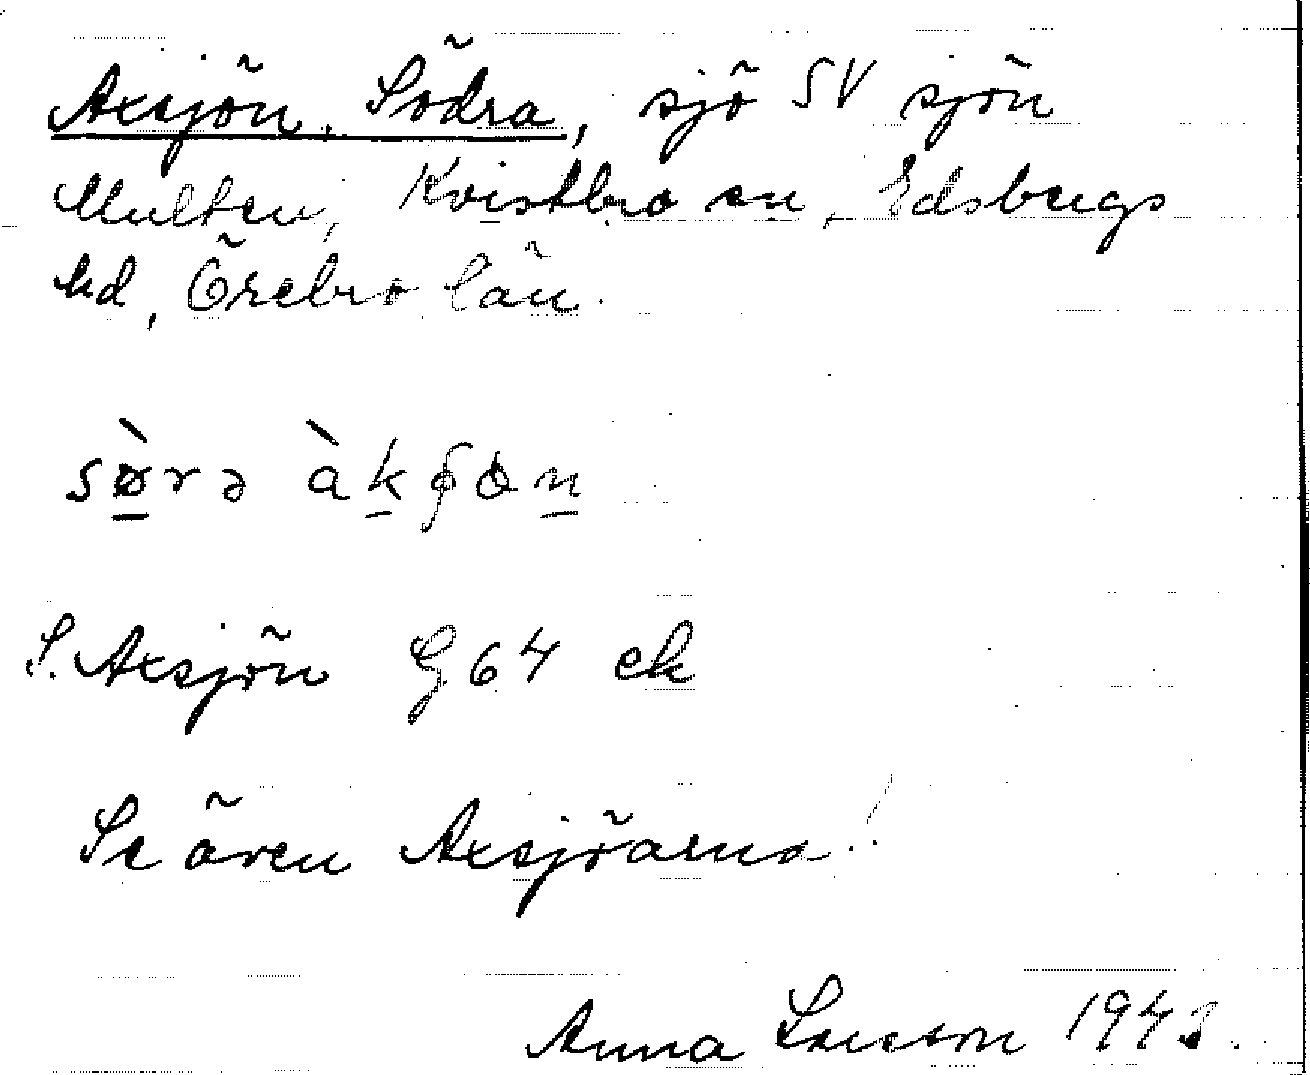 Axsjön, Södra, sjö SV sjön
Multen, Kvistbro sn, Edsbergs
hd, Örebro län.
sø̀rə àkʂɷn
S. Axsjön G 64 ek
Se även Axsjöarna!
Anna Larsson 1943.